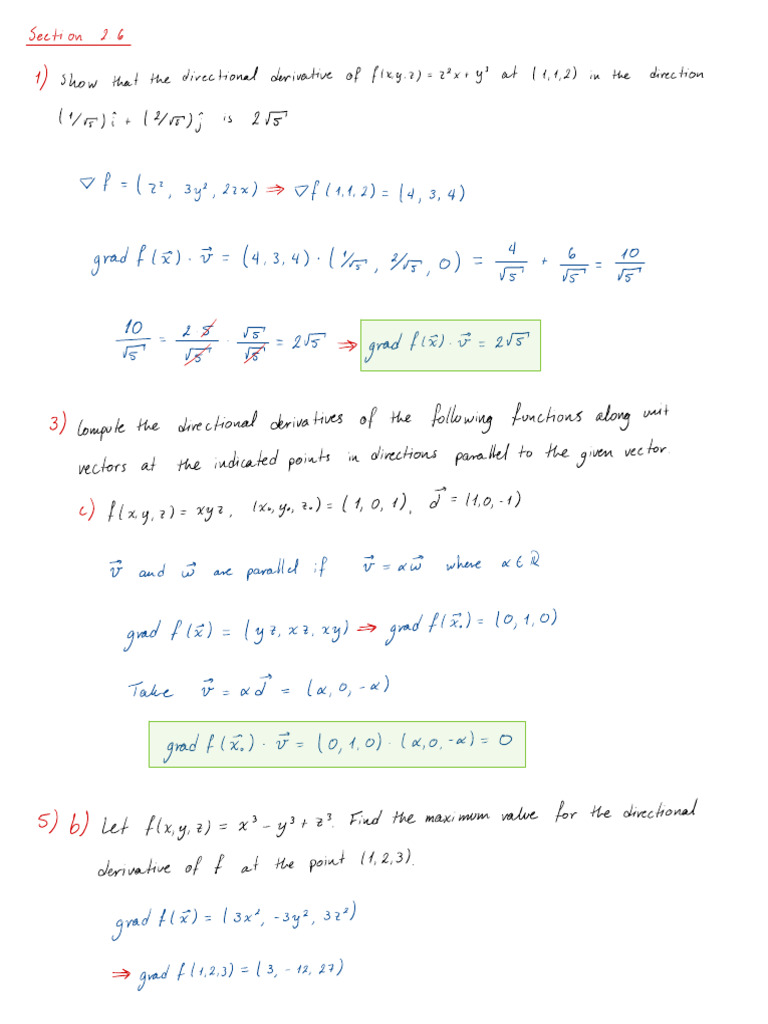 Section 2 6
1) Show that the directional derivative of f(x,y,z) = z²x + y³ at (1,1,2) in the direction
(1/√5)i + (2/√5)j is 2√5
∇f = (z², 3y², 2zx) ⇒ ∇f(1,1,2) = (4, 3, 4)
grad f(x⃗) · v⃗ = (4, 3, 4) · (1/√5, 2/√5, 0) = 4/√5 + 6/√5 = 10/√5
10/√5 = 2 5/√5 · √5/√5 = 2√5 ⇒ grad f(x⃗) · v⃗ = 2√5
3) Compute the directional derivatives of the following functions along unit
vectors at the indicated points in directions parallel to the given vector.
c) f(x,y,z) = xyz, (x₀, y₀, z₀) = (1, 0, 1), d⃗ = (1,0,-1)
v⃗ and w⃗ are parallel if v⃗ = αw⃗ where α ∈ ℝ
grad f(x⃗) = (yz, xz, xy) ⇒ grad f(x⃗₀) = (0, 1, 0)
Take v⃗ = αd⃗ = (α, 0, -α)
grad f(x⃗₀) · v⃗ = (0, 1, 0) · (α, 0, -α) = 0
5) b) Let f(x,y,z) = x³ - y³ + z³. Find the maximum value for the directional
derivative of f at the point (1,2,3).
grad f(x⃗) = (3x², -3y², 3z²)
⇒ grad f(1,2,3) = (3, -12, 27)